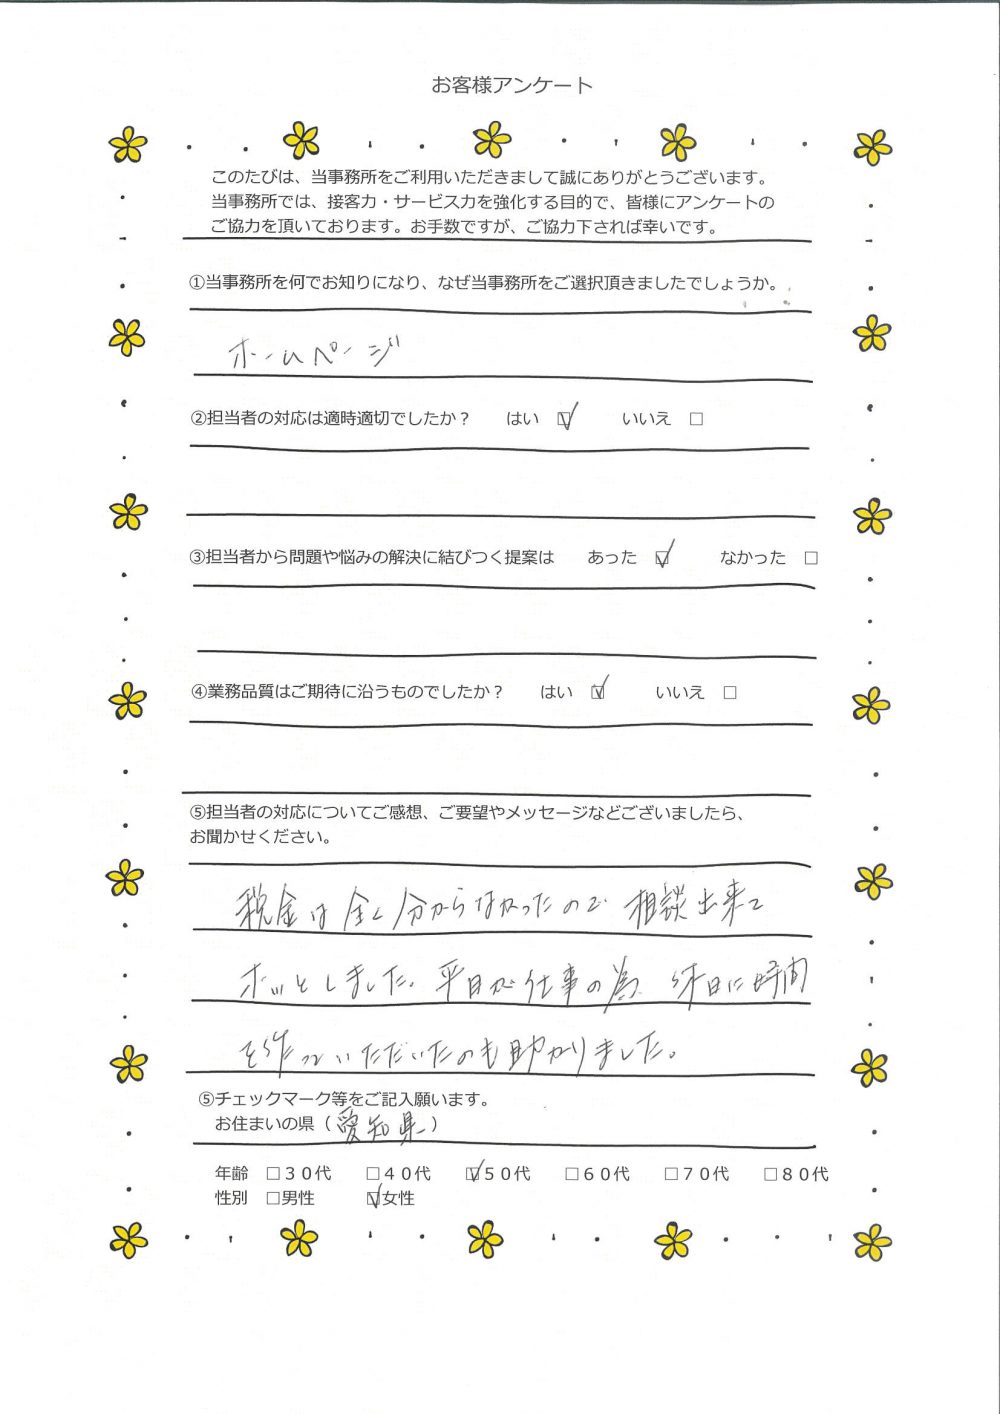 お客様アンケート
このたびは、当事務所をご利用いただきまして誠にありがとうございます。
当事務所では、接客力・サービス力を強化する目的で、皆様にアンケートの
ご協力を頂いております。お手数ですが、ご協力下されば幸いです。
①当事務所を何でお知りになり、なぜ当事務所をご選択頂きましたでしょうか。
ホームページ
②担当者の対応は適時適切でしたか？ はい ☑ いいえ □
③担当者から問題や悩みの解決に結びつく提案は あった ☑ なかった □
④業務品質はご期待に沿うものでしたか？ はい ☑ いいえ □
⑤担当者の対応についてご感想、ご要望やメッセージなどございましたら、
お聞かせください。
税金は全く分からなかったので相談出来て
ホッとしました。平日が仕事の為、休日に時間
を作っていただいたのも助かりました。
⑤チェックマーク等をご記入願います。
お住まいの県（愛知県）
年齢 □３０代 □４０代 ☑５０代 □６０代 □７０代 □８０代
性別 □男性 ☑女性